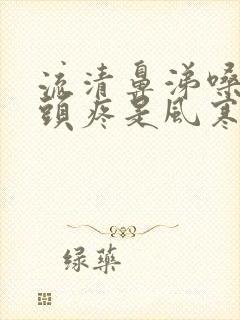 流清鼻涕嗓
頭疼是風寒
绿藥